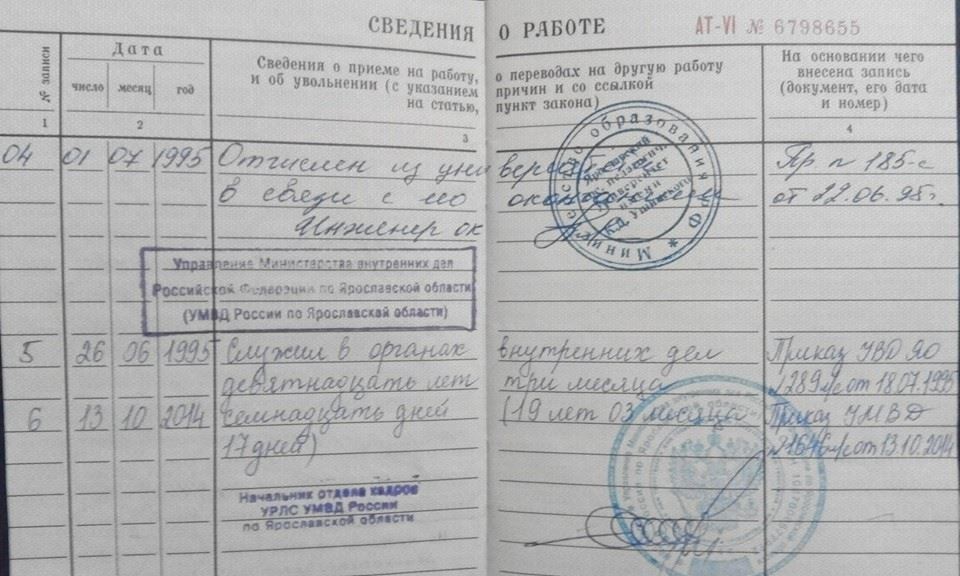 СВЕДЕНИЯ О РАБОТЕ
АТ-VI № 6798655
№ записи
Дата
число месяц год
Сведения о приеме на работу, о переводах на другую работу
и об увольнении (с указанием причин и со ссылкой
на статью, пункт закона)
На основании чего
внесена запись
(документ, его дата
и номер)
1 2 3 4
04 01 07 1995 Отчислен из универс Пр № 185-с
в связи с его окончанием от 22.06.95г.
Инженер ок
Министерство образования РФ
Ярославский
педагогич.
университет
имени
К.Д. Ушинского
Управление Министерства внутренних дел
Российской Федерации по Ярославской области
(УМВД России по Ярославской области)
5 26 06 1995 Служил в органах внутренних дел Приказ УВД ЯО
девятнадцать лет три месяца №289 л/с от 18.07.1995
6 13 10 2014 семнадцать дней (19 лет 03 месяца Приказ УМВД
17 дней) №1646 л/с от 13.10.2014
Начальник отдела кадров
УРЛС УМВД России
по Ярославской области